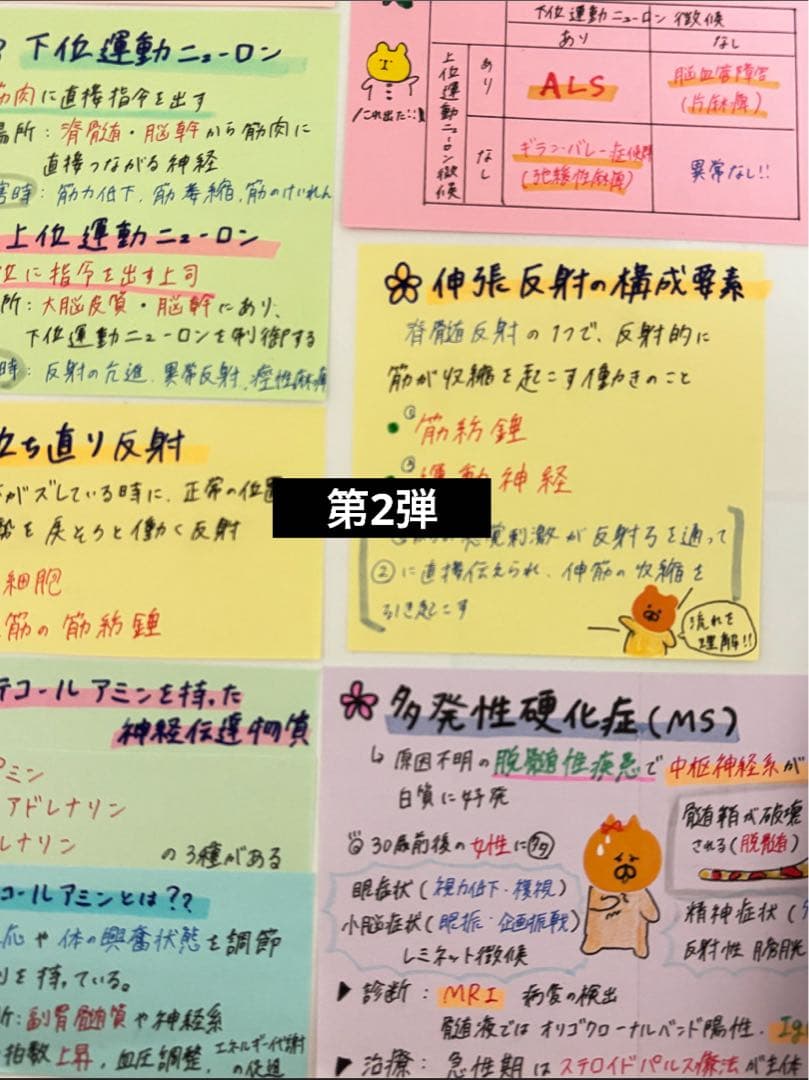 ? 下位運動ニューロン
筋肉に直接指令を出す
場所：脊髄・脳幹から筋肉に
直接つながる神経
害時：筋力低下，筋萎縮，筋のけいれん
上位運動ニューロン
位に指令を出す上司
所：大脳皮質・脳幹にあり、
下位運動ニューロンを制御する
時：反射の亢進，異常反射，痙性麻痺
立ち直り反射
がズレている時に、正常の位置
を戻そうと働く反射
細胞
筋の筋紡錘
テコールアミンを持った
神経伝達物質
アミン
アドレナリン
レナリン
の3種がある
コールアミンとは??
応や体の興奮状態を調節
りを持っている。
所：副腎髄質や神経系
拍数上昇，血圧調整，エネルギー代謝
の促進
下位運動ニューロン徴候
あり なし
上位運動ニューロン徴候
あり ALS 脳血管障害
(片麻痺)
なし ギランバレー症候群
(弛緩性麻痺) 異常なし!!
これ出た!!
伸張反射の構成要素
脊髄反射の1つで、反射的に
筋が収縮を起こす働きのこと
① 筋紡錘
運動神経
第2弾
感覚刺激が反射弓を通って
②に直接伝えられ、伸筋の収縮を
引き起こす
流れを
理解!!
多発性硬化症(MS)
↳ 原因不明の脱髄性疾患で中枢神経系が
白質に好発
30歳前後の女性に多
眼症状(視力低下・複視)
小脳症状(眼振・企画振戦)
レミネット徴候
髄鞘が破壊
される(脱髄)
精神症状(
反射性 膀胱
▶ 診断：MRI 病変の検出
髄液ではオリゴクローナルバンド陽性．Ig
▶ 治療：急性期はステロイドパルス療法が主体